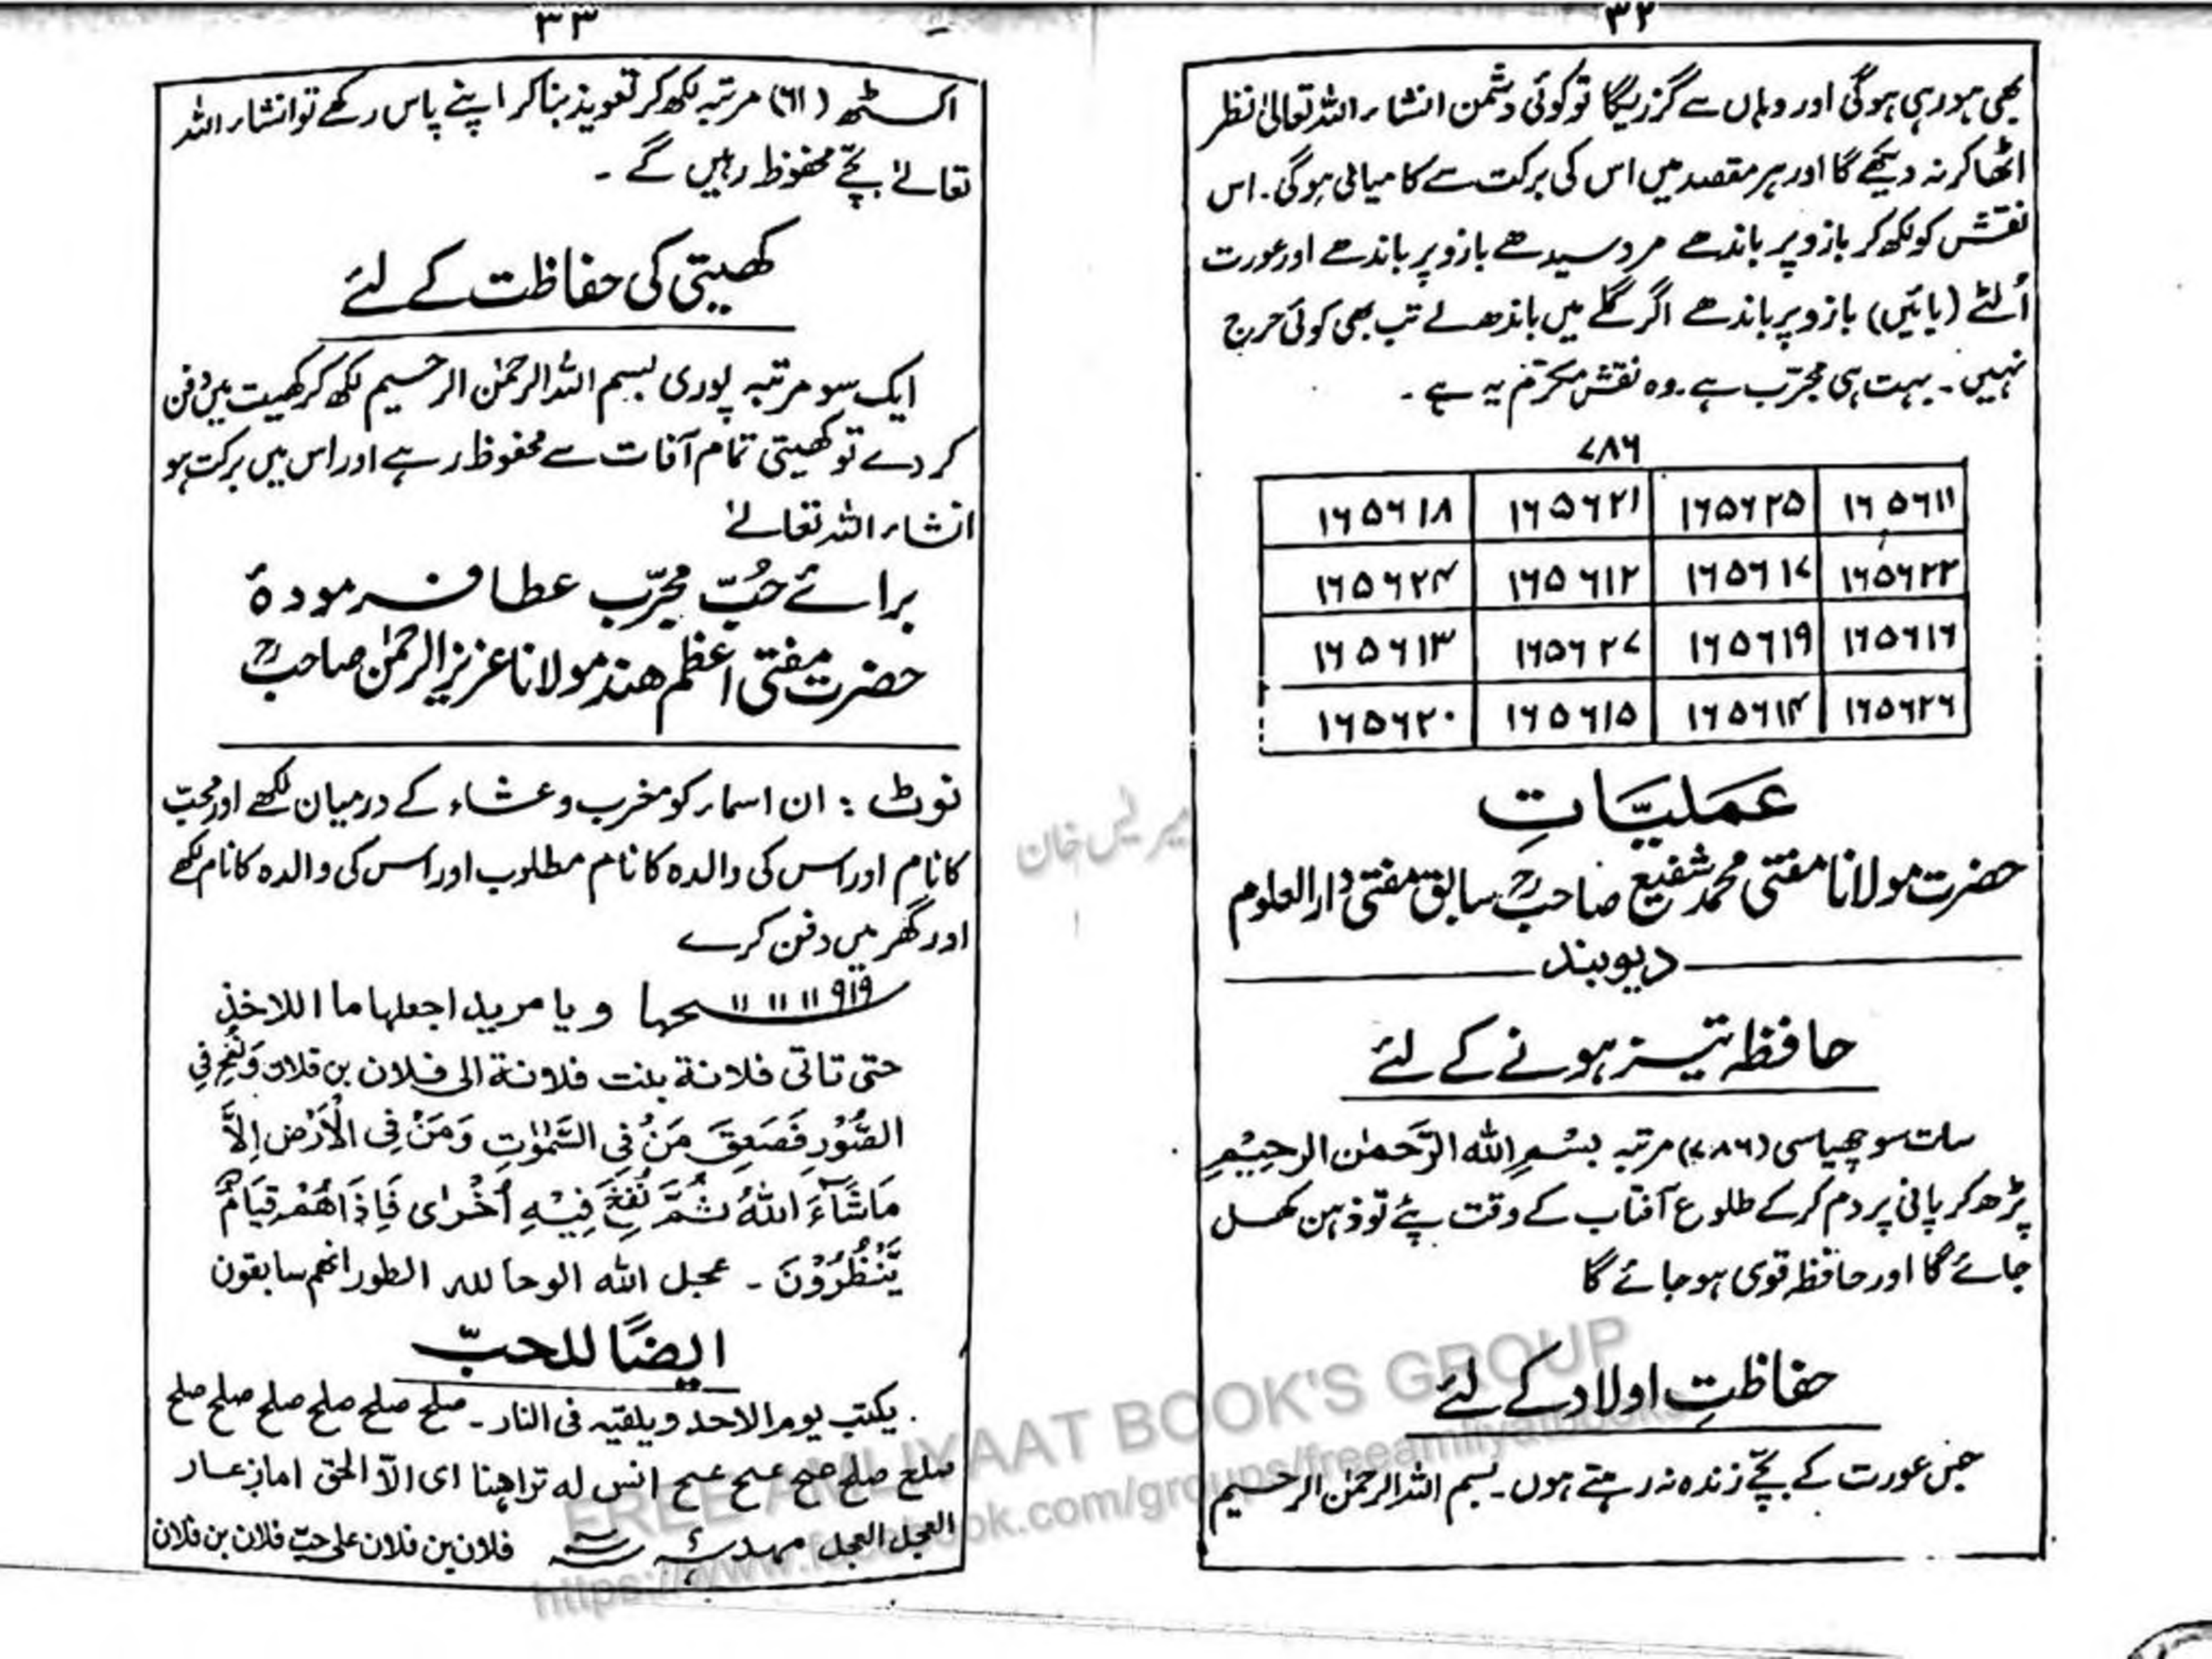 ۳۲
بھی ہو رہی ہوگی اور وہاں سے گزریگا تو کوئی دشمن انشاء اللہ تعالیٰ نظر
اٹھا کر نہ دیکھے گا اور ہر مقصد میں اس کی برکت سے کامیابی ہوگی۔ اس
نقش کو لکھ کر بازو پر باندھے مرد سیدھے بازو پر باندھے اور عورت
اُلٹے (بائیں) بازو پر باندھے اگر گلے میں باندھ لے تب بھی کوئی حرج
نہیں۔ بہت ہی مجرّب ہے۔ وہ نقش مکرّم یہ ہے۔
۷۸۶
۱۶۵۶۱۱ ۱۶۵۶۲۵ ۱۶۵۶۲۱ ۱۶۵۶۱۸
۱۶۵۶۲۲ ۱۶۵۶۱۷ ۱۶۵۶۱۲ ۱۶۵۶۲۴
۱۶۵۶۱۶ ۱۶۵۶۱۹ ۱۶۵۶۲۷ ۱۶۵۶۱۳
۱۶۵۶۲۶ ۱۶۵۶۱۴ ۱۶۵۶۱۵ ۱۶۵۶۲۰
عَمَلیَّاتِ
حضرت مولانا مفتی محمد شفیع صاحبؒ سابق مفتی دارالعلوم
دیوبند
حافظہ تیز ہونے کے لئے
سات سو چھیاسی (۷۸۶) مرتبہ بِسْمِ اللہ الرَّحمٰن الرحِیْمِ
پڑھ کر پانی پر دم کرکے طلوع آفتاب کے وقت پئے تو ذہن کھل
جائے گا اور حافظہ قوی ہو جائے گا
حفاظتِ اولاد کے لئے
جس عورت کے بچے زندہ نہ رہتے ہوں۔ بسم اللہ الرحمٰن الرحیم
۳۳
اکسٹھ (۶۱) مرتبہ لکھ کر تعویذ بنا کر اپنے پاس رکھے تو انشاء اللہ
تعالےٰ بچّے محفوظ رہیں گے۔
کھیتی کی حفاظت کے لئے
ایک سو مرتبہ پوری بسم اللہ الرحمٰن الرحیم لکھ کر کھیت میں دفن
کر دے تو کھیتی تمام آفات سے محفوظ رہے اور اس میں برکت ہو
انشاء اللہ تعالےٰ
برائے حُبّ مجرّب عطا فرمودۂ
حضرت مفتی اعظم ھند مولانا عزیز الرحمٰن صاحبؒ
نوٹ : ان اسماء کو مغرب و عشاء کے درمیان لکھے اور محبّ
کا نام اور اس کی والدہ کا نام مطلوب اور اس کی والدہ کا نام لکھے
اور گھر میں دفن کرے
۹۱۹ ۱۱ ۱۱ ۱۱ و یا مرید اجعلها ما اللاخذ
حتی تاتی فلانة بنت فلانة الی فلان بن فلان وَنُفِخَ فِی
الصُّوْرِ فَصَعِقَ مَنْ فِی السَّمٰوٰتِ وَمَنْ فِی الْاَرْضِ اِلاَّ
مَاشَآءَ اللهُ ثُمَّ نُفِخَ فِیْهِ اُخْرٰی فَاِذَا هُمْ قِیَامٌ
یَّنْظُرُوْنَ۔ عجل الله الوحا لله الطور انهم سابقون
ایضًا للحبّ
یکتب یوم الاحد ویلقیه فی النار۔ صلح صلح صلح صلح صلح صلح
صلع صلح انس له تراهنا ای الاّ الحق اما
العجل العجل فلان بن فلان علی حب فلان بن فلان
FREE AMLIYAAT BOOK'S GROUP
https://www.facebook.com/groups/freeamliyatbooks